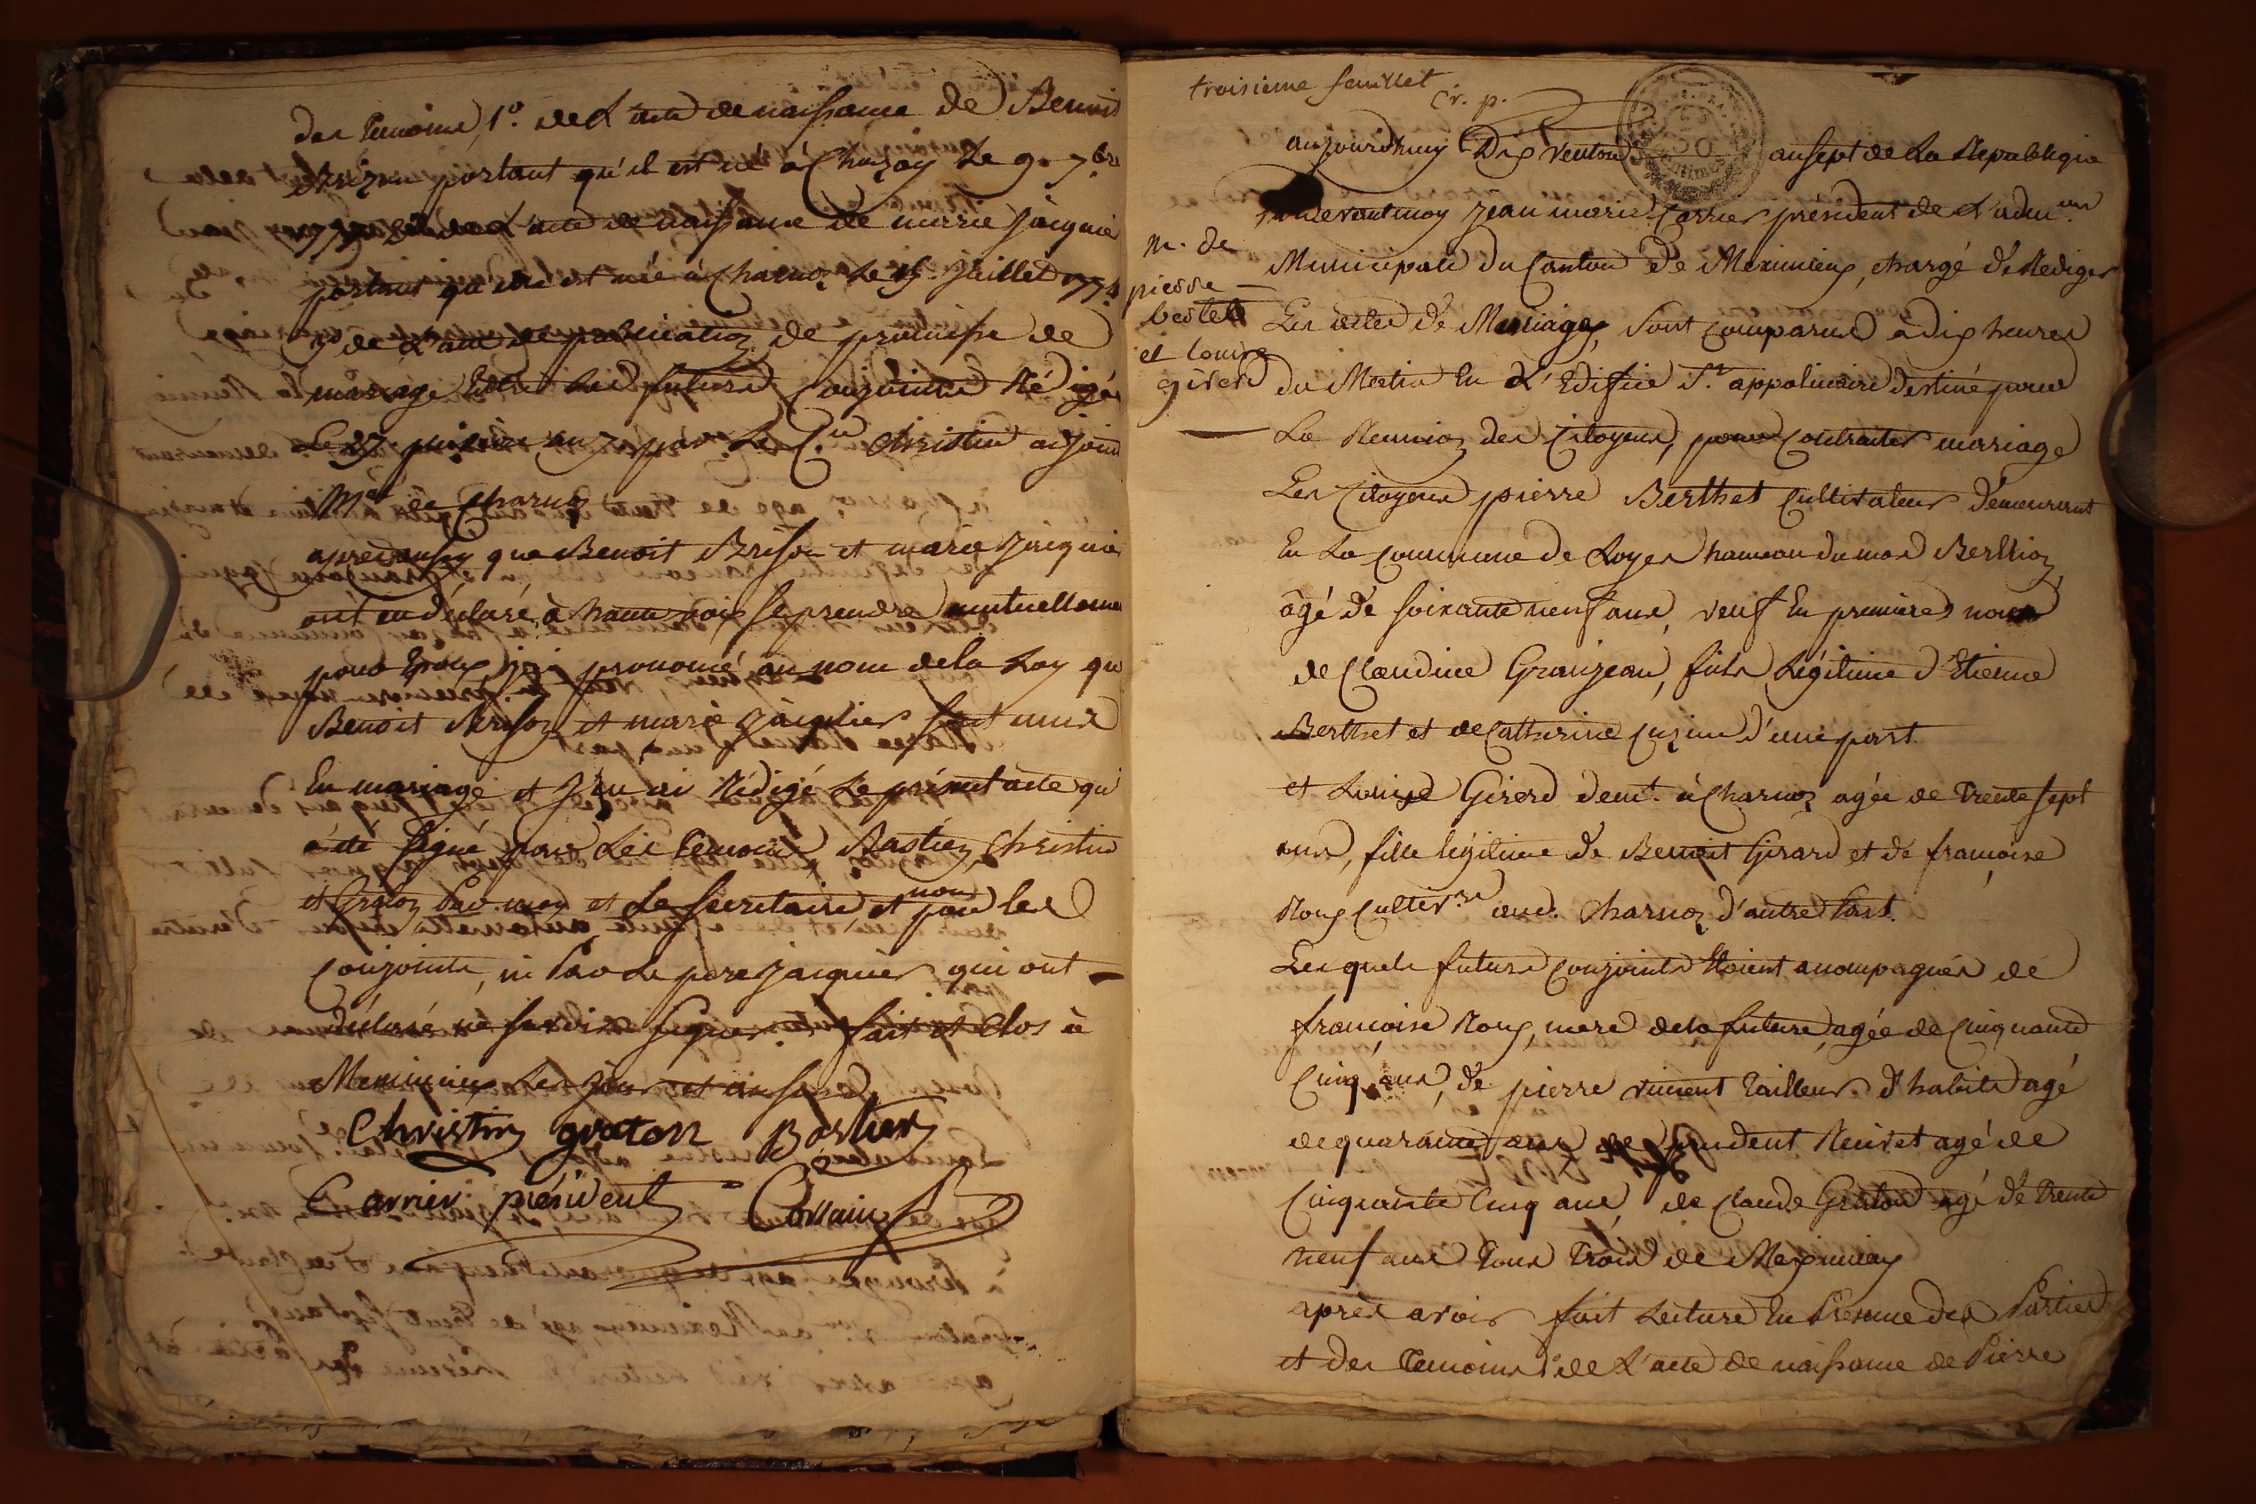 des temoins, 1°. de L'acte de naissance de Benoit
Brizon portant qu'il est né à Chazay Le 9. 7.bre
de L'acte de naissance de marie jacquier
portant qu'elle est née à Charnoz Le 15 Juillet 1774
3° de L'acte de publication de promesse de
mariage Entre Les futurs Conjoints Rédigé
Le 27 an 7 par Le C.en Christin adjoint
M.al de Charnoz
après aussy que Benoit Brison et marie Jacquier
ont eu déclaré à haute voix se prendre mutuellement
pour Epoux, j'ai prononcé au nom de la Loy que
Benoit Brison et marie Jacquier sont unis
En mariage et J'en ai Rédigé Le présent acte qui
a été signé par Les temoins Bastien, Christin
et Graton Par moy et Le Secretaire et non par les
Conjoints, ni Par Le pere Jacquier qui ont
déclaré ne savoir signer. fait et Clos à
Meximieux Les jour et an susd
Christin graton Bastien
Carrier président
troisieme feuillet
Cr. p.
aujourdhuy Dix Ventose an sept de La Republique
Pardevant moy Jean marie Carrier président de L'adm.on
Municipale du Canton de Meximieux, chargé de Rediger
Les actes de Mariage, Sont Comparus a dix heures
du Matin En L'Edifice St. appolinaire destiné pour
La Reunion des Citoyens, pour Contracter mariage
Les Citoyens pierre Berthet Cultivateur demeurant
En La Commune de Loyes hameau du mas Berthion
âgé de soixante neuf ans, veuf En premieres noces
de Claudine Granjean, fils Légitime d'Etienne
Berthet et de Catherine Cuzin d'une part
et Louise Girerd demt. à Charnoz agée de trente sept
ans, fille légitime de Benoit Girard et de françoise
Roux Cultiv.rs aud. Charnoz d'autre Part.
Lesquels futurs Conjoints Etoient accompagnés de
françoise Roux, mere de la future, agée de Cinquante
Cinq ans, de pierre vincent tailleur d'habits agé
de quarante ans de prudent agé de
Cinquante Cinq ans, de Claude Graton agé de trente
neuf ans tous trois de Meximieux
après avoir fait Lecture En Presence des Parties
et des temoins 1° de L'acte de naissance de Pierre
m. de
pierre
bertet
et louise
girerd